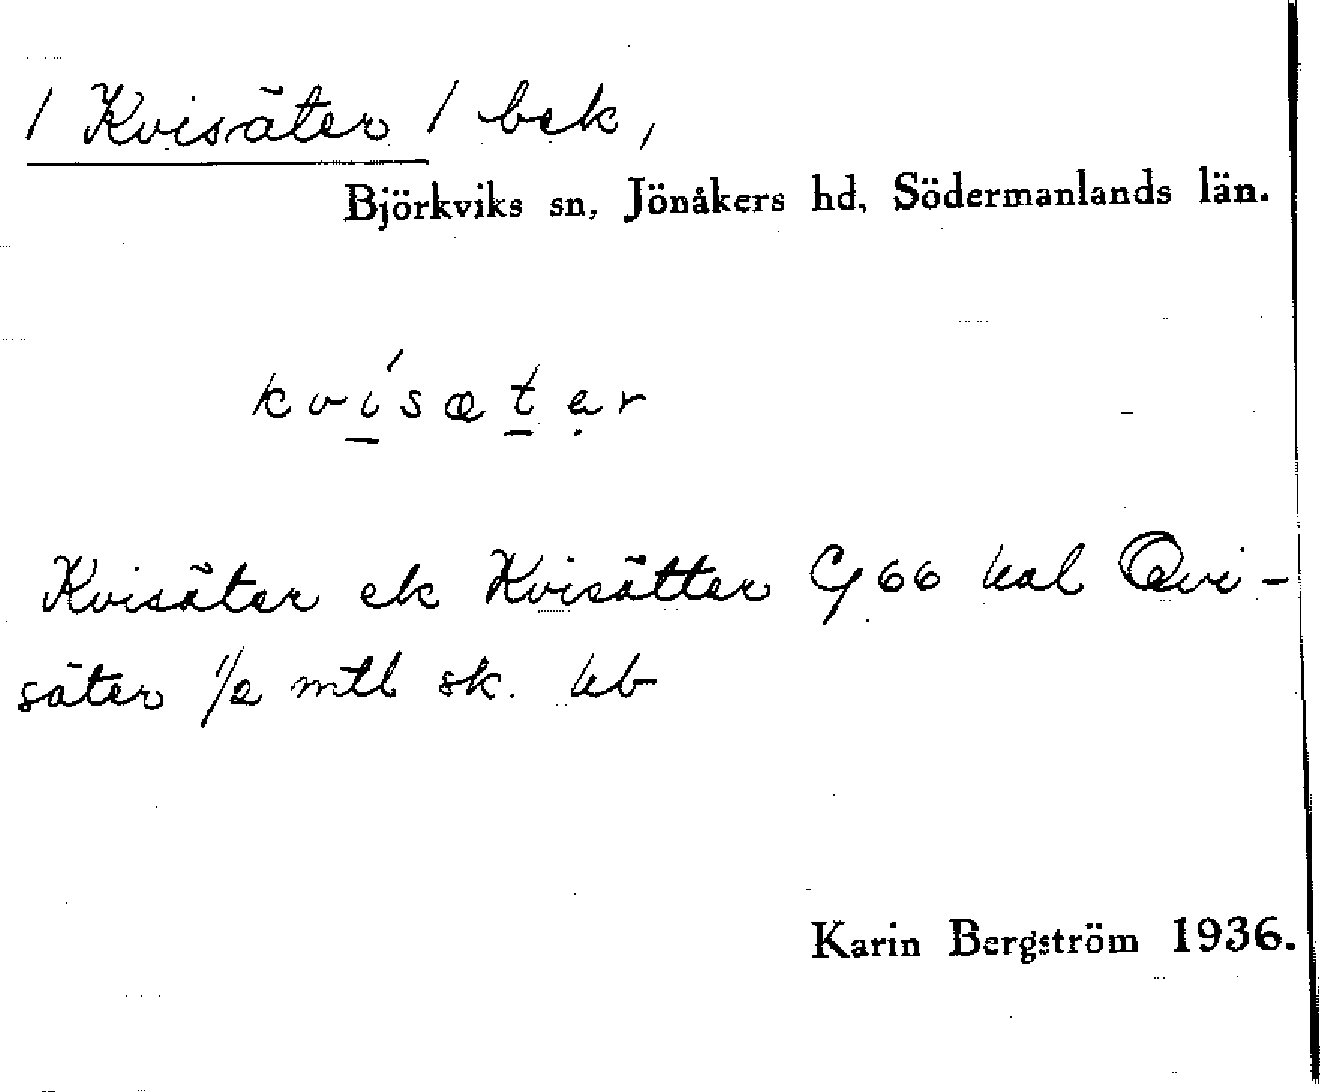 / Kvisäter / bek,
Björkviks sn, Jönåkers hd, Södermanlands län.
kvi´sætạr
Kvisäter ek Kvisätter Cf 66 kal Qvi-
säter 1/2 mtl sk. kb
Karin Bergström 1936.